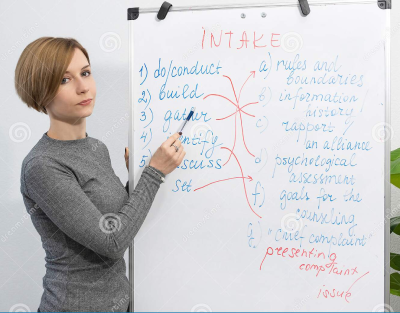 INTAKE
1) do/conduct
2) build
3) gather
4)
5)
set
a) rules and
boundaries
b) information
history
c) rapport
an alliance
d) psychological
assessment
f) goals for the
counseling
"chief complaint"
presenting
complaint
issue